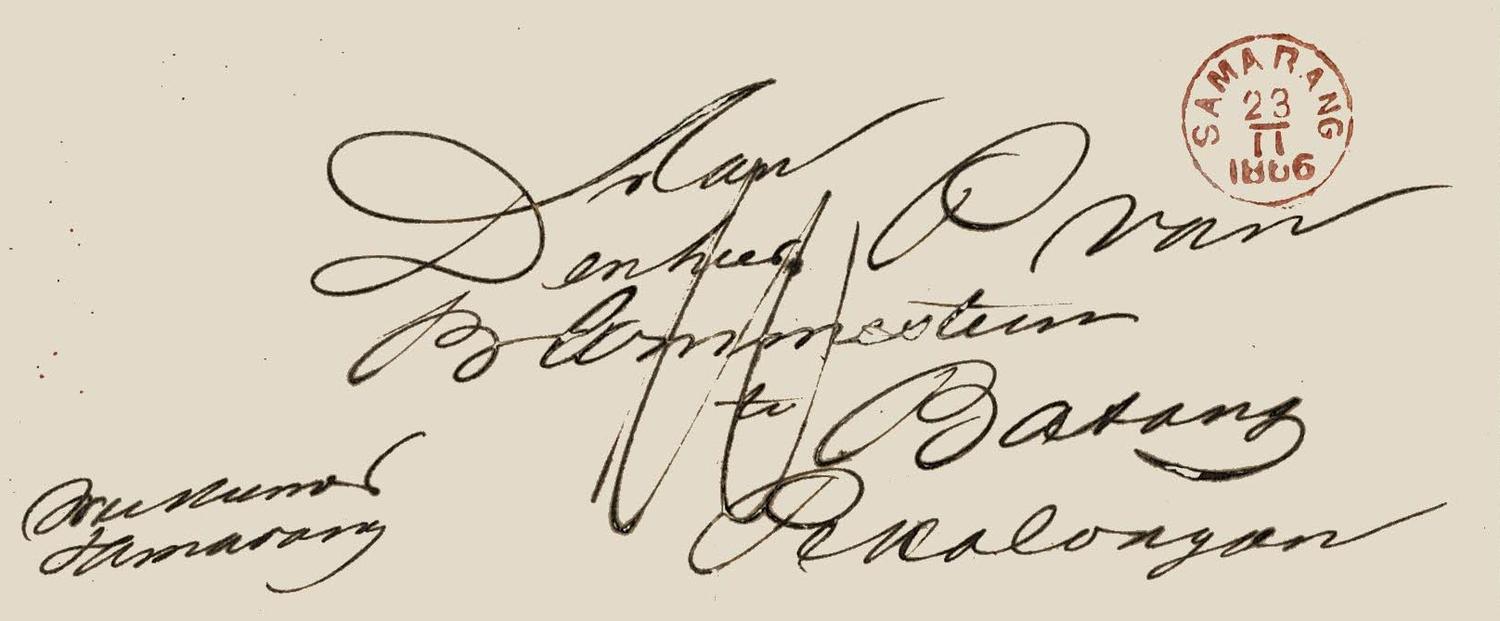 SAMARANG
23
11
1886
Aan
Denheer P van
Blommestein
te Batang
Pekalongan
Samarang